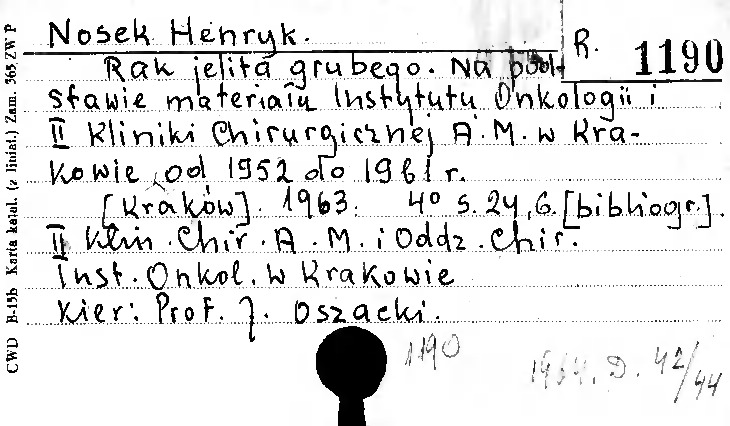 Nosek Henryk.
R. 1190
Rak jelita grubego. Na pod-
stawie materiału Instytutu Onkologii i
II Kliniki Chirurgicznej A.M. w Kra-
kowie od 1952 do 1961 r.
[Kraków]. 1963. 4° s. 24, 6. [bibliogr.].
II Klin. Chir. A. M. i Oddz. Chir.
Inst. Onkol. w Krakowie
Kier: Prof. J. Oszacki.
1190
1964. D. 42/44
CWD B-15b Karta katal. (z liniat.) Zam. 365 ZW P